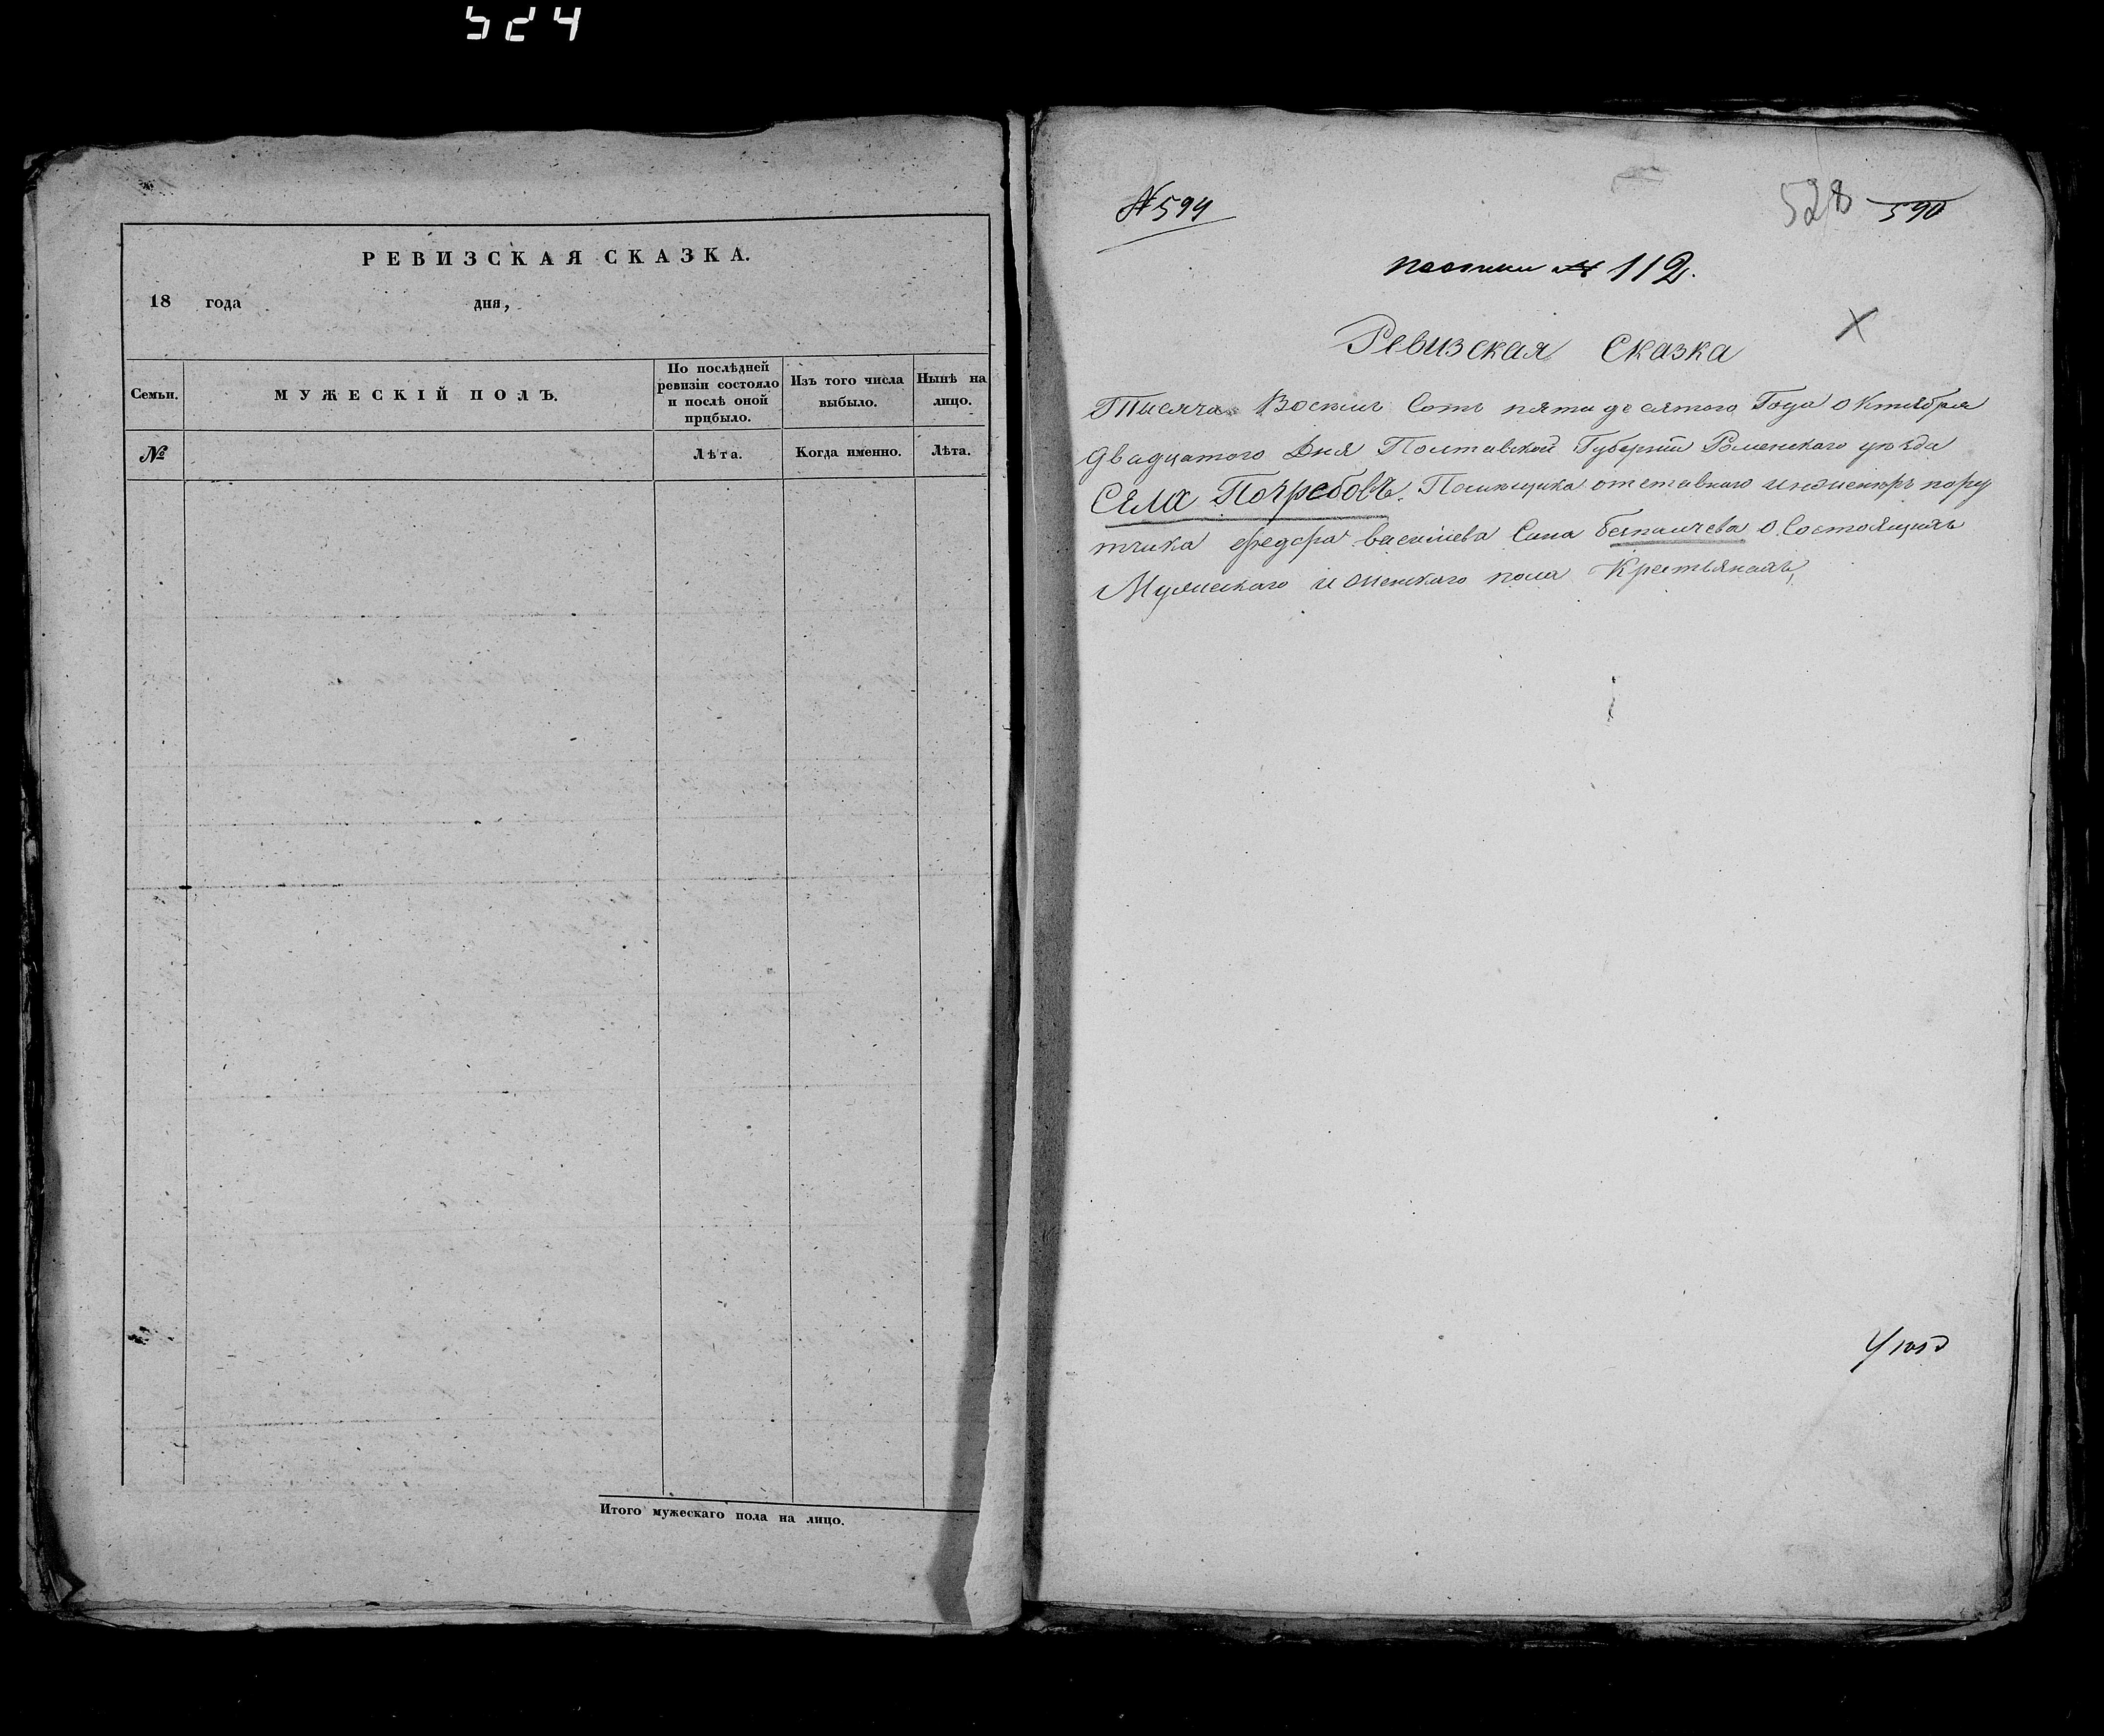 524
РЕВИЗСКАЯ СКАЗКА.
18 года дня,
Семьи.
МУЖЕСКІЙ ПОЛЪ.
По послѣдней
ревизіи состояло
и послѣ оной
прибыло.
Изъ того числа
выбыло.
Нынѣ на
лицо.
№
Лѣта.
Когда именно.
Лѣта.
Итого мужескаго пола на лицо.
№ 594
528 590
№ 112.
Ревизская Сказка
Тысяча Восемь Сотъ пятидесятого Года Октября
двадцатого Дня Полтавской Губерніи Роменскаго уѣзда
Села Погребовъ. Помѣщика отставнаго инженеръ пору
тчика федора васильева Сына беспальчева О Состоящихъ
Мужескаго и женскаго пола Крестьянахъ,